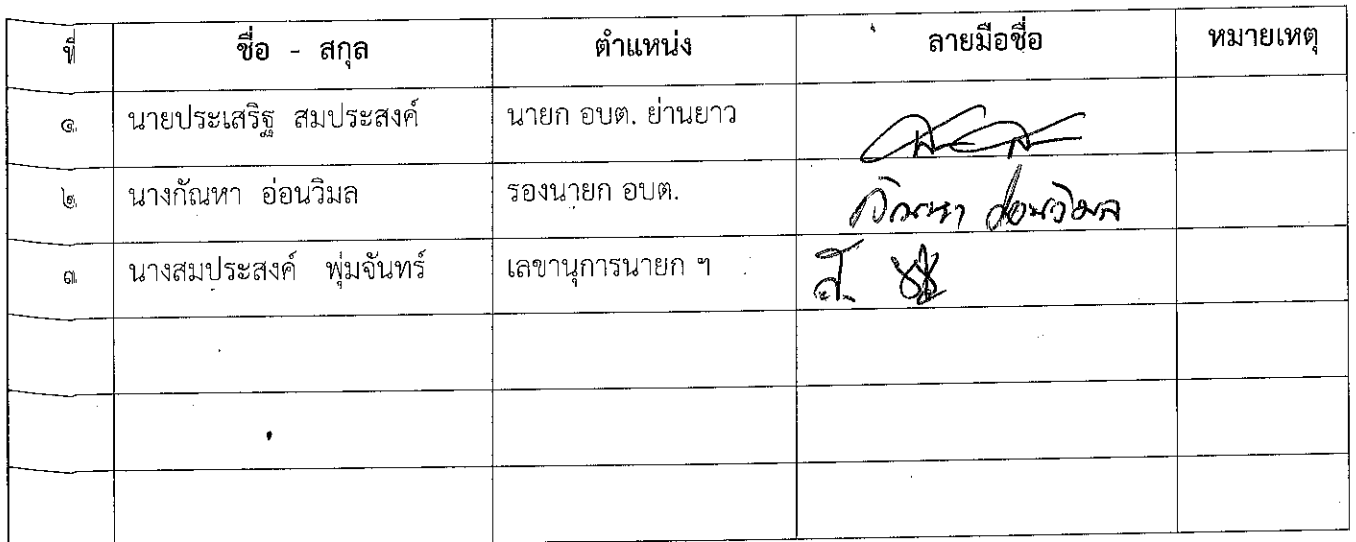 ที่ ชื่อ - สกุล ตำแหน่ง ลายมือชื่อ หมายเหตุ
๑. นายประเสริฐ สมประสงค์ นายก อบต. ย่านยาว
๒. นางกัณหา อ่อนวิมล รองนายก อบต. กัณหา อ่อนวิมล
๓. นางสมประสงค์ พุ่มจันทร์ เลขานุการนายก ฯ